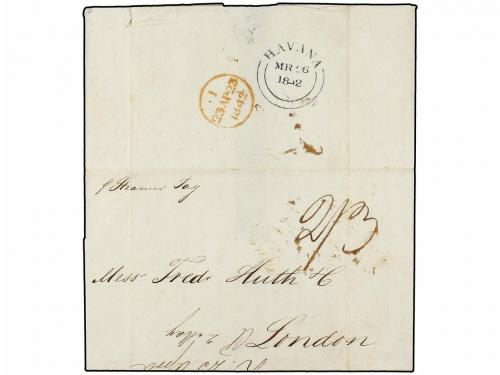 HAVANA
MR 26
1842
1
23 AP 23
1842
p Steamer Tay
2/3
Mess Fredr Huth &
London